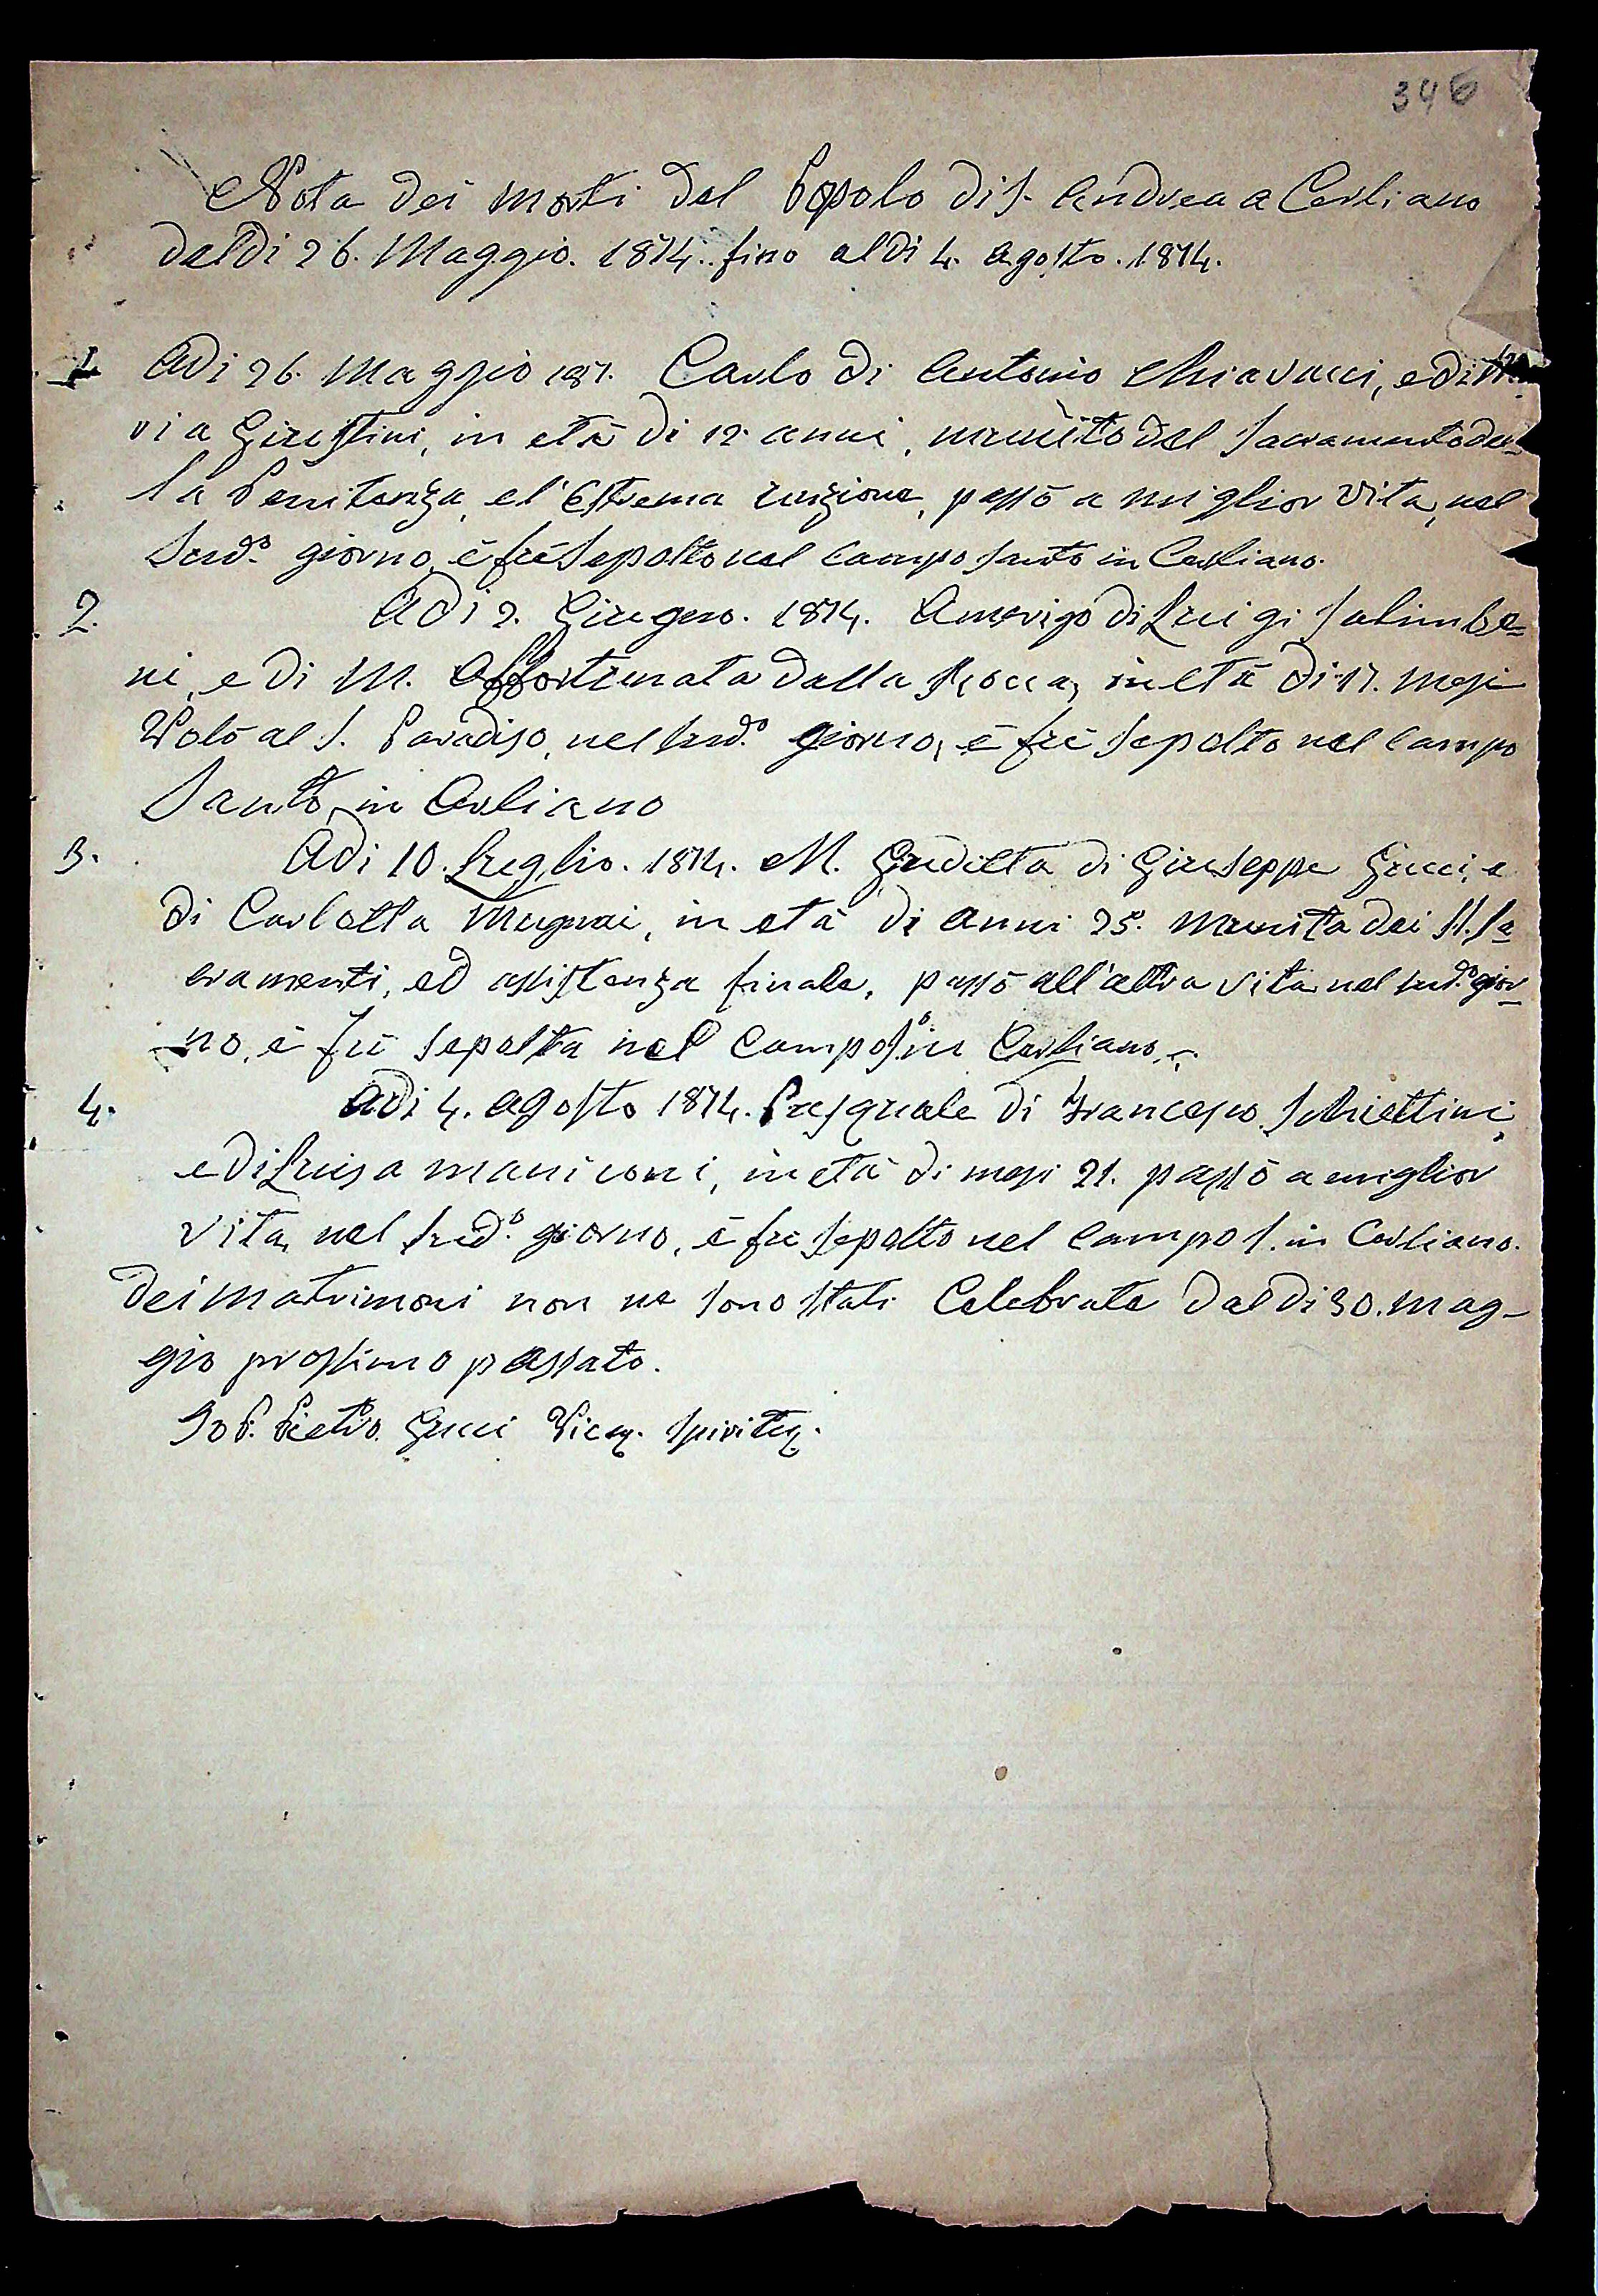 346
Nota dei morti del Popolo di S. Andrea a Cerliano
dal di 26. Maggio. 1874. fino al di 4. Agosto. 1874.
1. Adi 26. Maggio 187. Carlo di Antonio Chiavacci, e di
via Giustini, in età di 12. anni, munito del Sacramento del=
la Penitenza, e l'Estrema unzione, passò a miglior Vita, nel
Sudo. giorno, è fù Sepolto nel Campo Santo in Cerliano.
2. Adi 2. Giugno. 1874. Amerigo di Luigi Salimbe=
ni, e di M. Affortunata Dalla Rocca, in età di 17. mesi
Volò al S. Paradiso, nel sudo. giorno, è fù sepolto nel Campo
Santo, in Cerliano
3. Adi 10. Luglio. 1874. M. Giuditta di Giuseppe Gucci, e
di Carlotta Mugnai, in età di anni 25. Munita dei SS. Sa=
cramenti, ed assistenza finale, passò all'altra vita nel sudo. gior=
no, è fù sepolta nel Campo So. in Cerliano.
4. Adi 4. Agosto 1874. Pasquale di Francesco Schiettini,
e di Luisa Maniconi, in età di mesi 21. passò a miglior
Vita, nel sudo. giorno, è fu Sepolto nel Campo S. in Cerliano.
Dei Matrimoni non ne sono stati Celebrate dal di 30. mag=
gio prossimo passato.
Io P. Pietro Gucci Vico. Spirito.